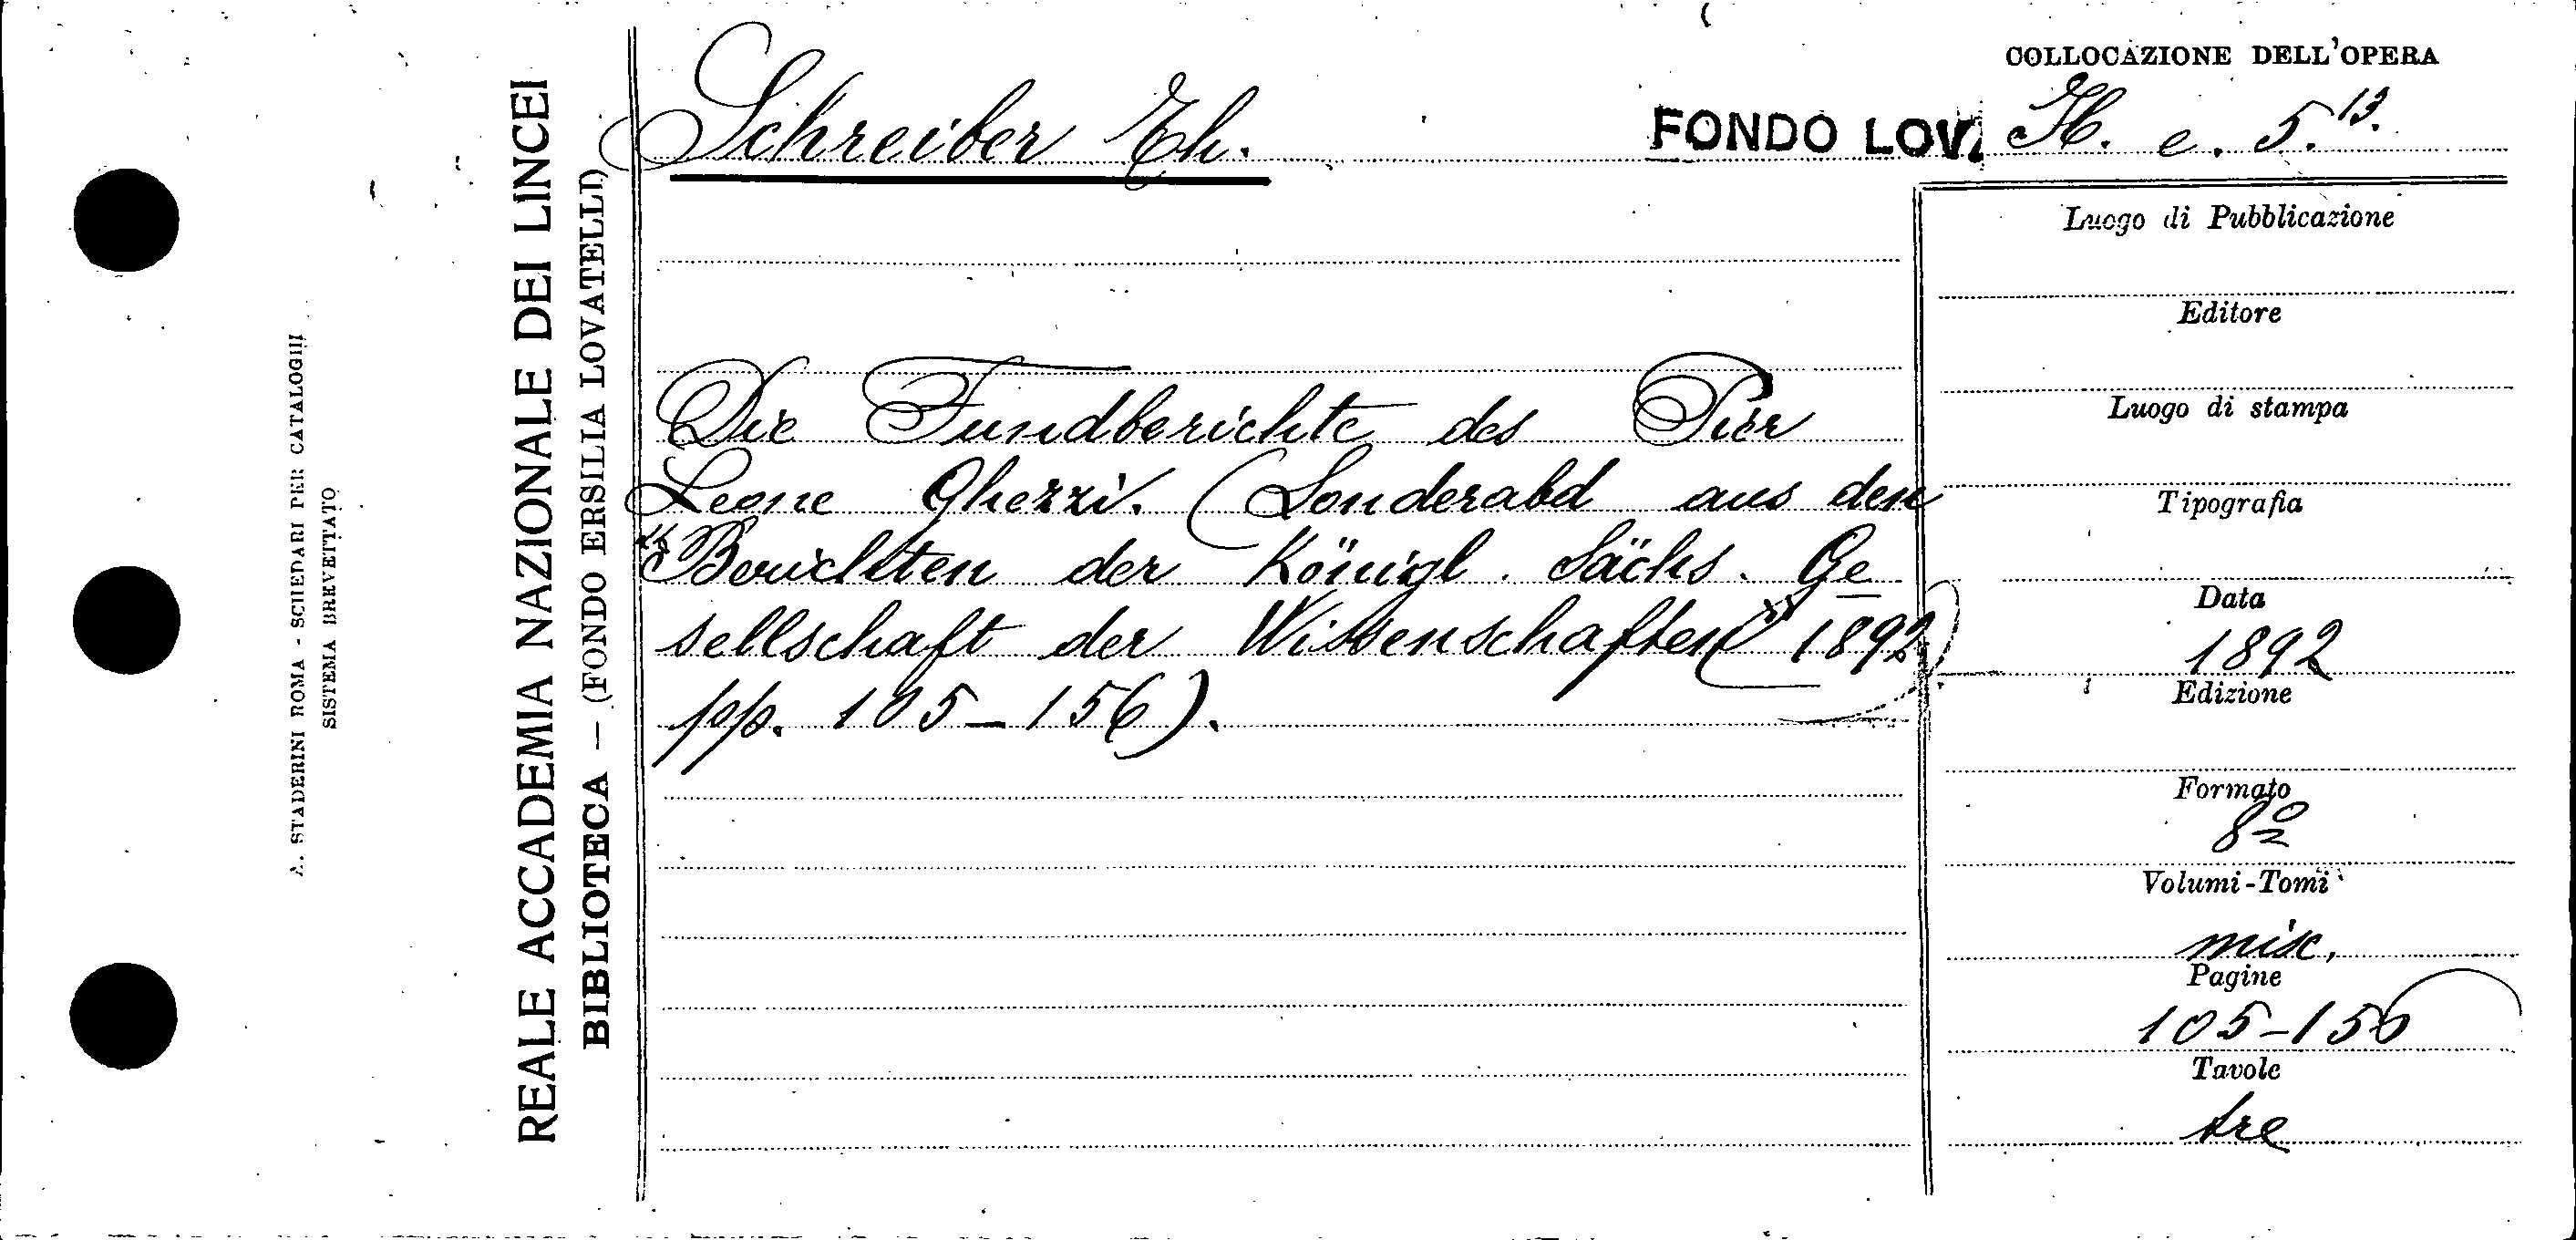 A. STADERINI ROMA - SCHEDARI PER CATALOGHI
SISTEMA BREVETTATO
REALE ACCADEMIA NAZIONALE DEI LINCEI
BIBLIOTECA — (FONDO ERSILIA LOVATELLI)
Schreiber Th.
FONDO LOV.
COLLOCAZIONE DELL'OPERA
H. e. 5.13.
Die Fundberichte des Pier
Leone Ghezzi. (Sonderabd aus den
"Berichten der Königl. Sächs. Ge
sellschaft der Wissenschaften" 1892
pp. 105-156).
Luogo di Pubblicazione
Editore
Luogo di stampa
Tipografia
Data
1892
Edizione
Formato
8º
Volumi-Tomi
misc.
Pagine
105-156
Tavole
tre